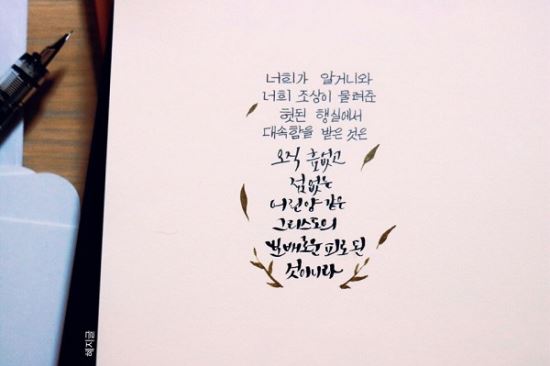 너희가 알거니와
너희 조상이 물려준
헛된 행실에서
대속함을 받은 것은
오직 흠없고
점없는
어린양 같은
그리스도의
보배로운 피로 된
것이니라
혜지글